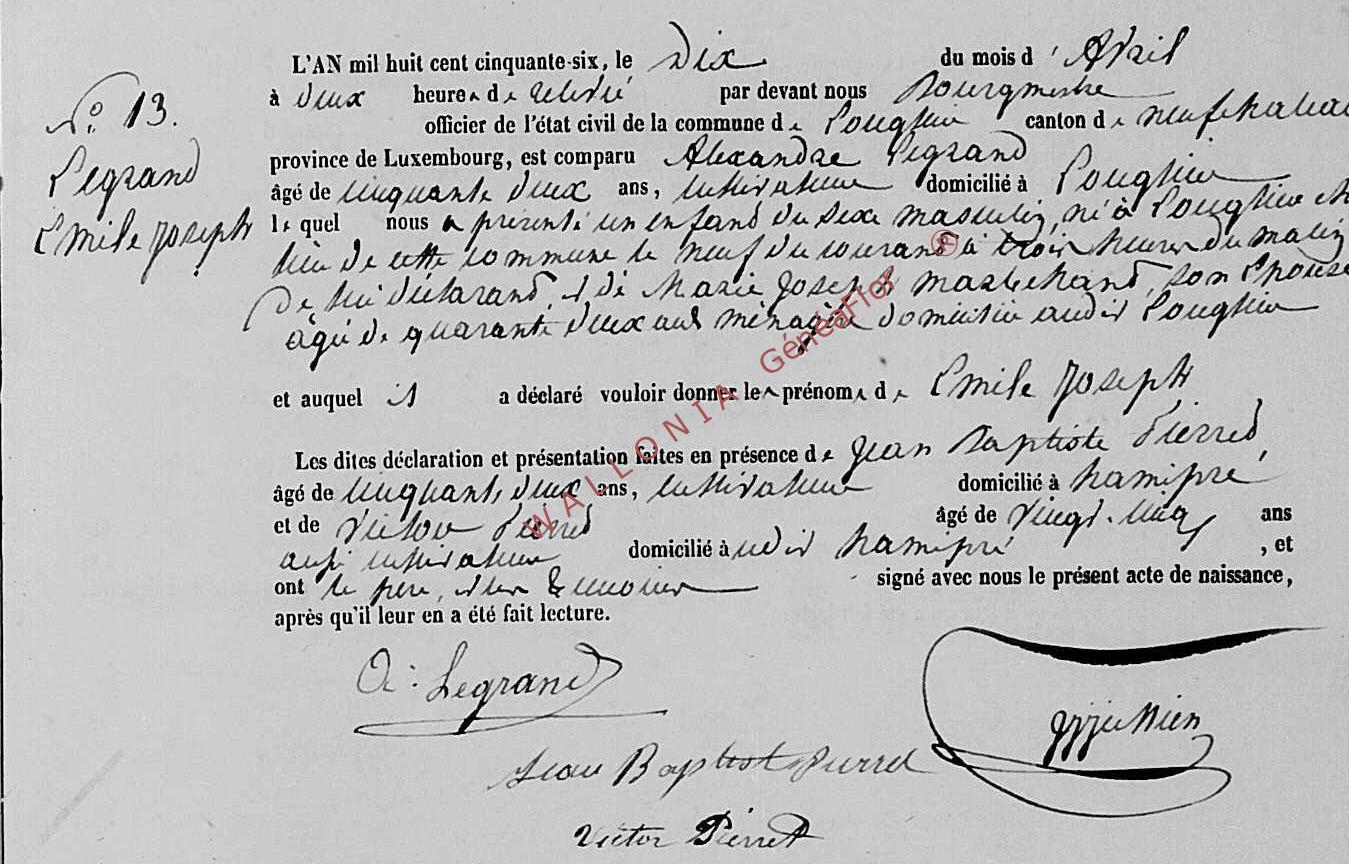 L'AN mil huit cent cinquante-six, le Dix du mois d' Avril
N° 13.
à deux heures de relevé par devant nous Bourgmestre
officier de l'état civil de la commune de Longlier canton de neufchateau
Legrand
province de Luxembourg, est comparu Alexandre Legrand
âgé de cinquante deux ans, cultivateur domicilié à Longlier
Emile Joseph
le quel nous a présenté un enfant du sexe masculin, né à Longlier
de cette commune le neuf du courant à trois heures du matin
De lui déclarant, et de Marie Joseph maréchand, son Epouse
âgée de quarante deux ans ménagère domiciliée audit Longlier
et auquel il a déclaré vouloir donner les prénoms de Emile Joseph
Les dites déclaration et présentation faites en présence de Jean Baptiste Pierret,
âgé de cinquante deux ans, cultivateur domicilié à hamipré
et de Victor Pierret âgé de vingt-cinq ans
aussi cultivateur domicilié audit hamipré , et
ont le père, et les témoins signé avec nous le présent acte de naissance,
après qu'il leur en a été fait lecture.
WALLONIA GénéaFlor ®
A: Legrand
Jean Baptist Pierret
Victor Pierret